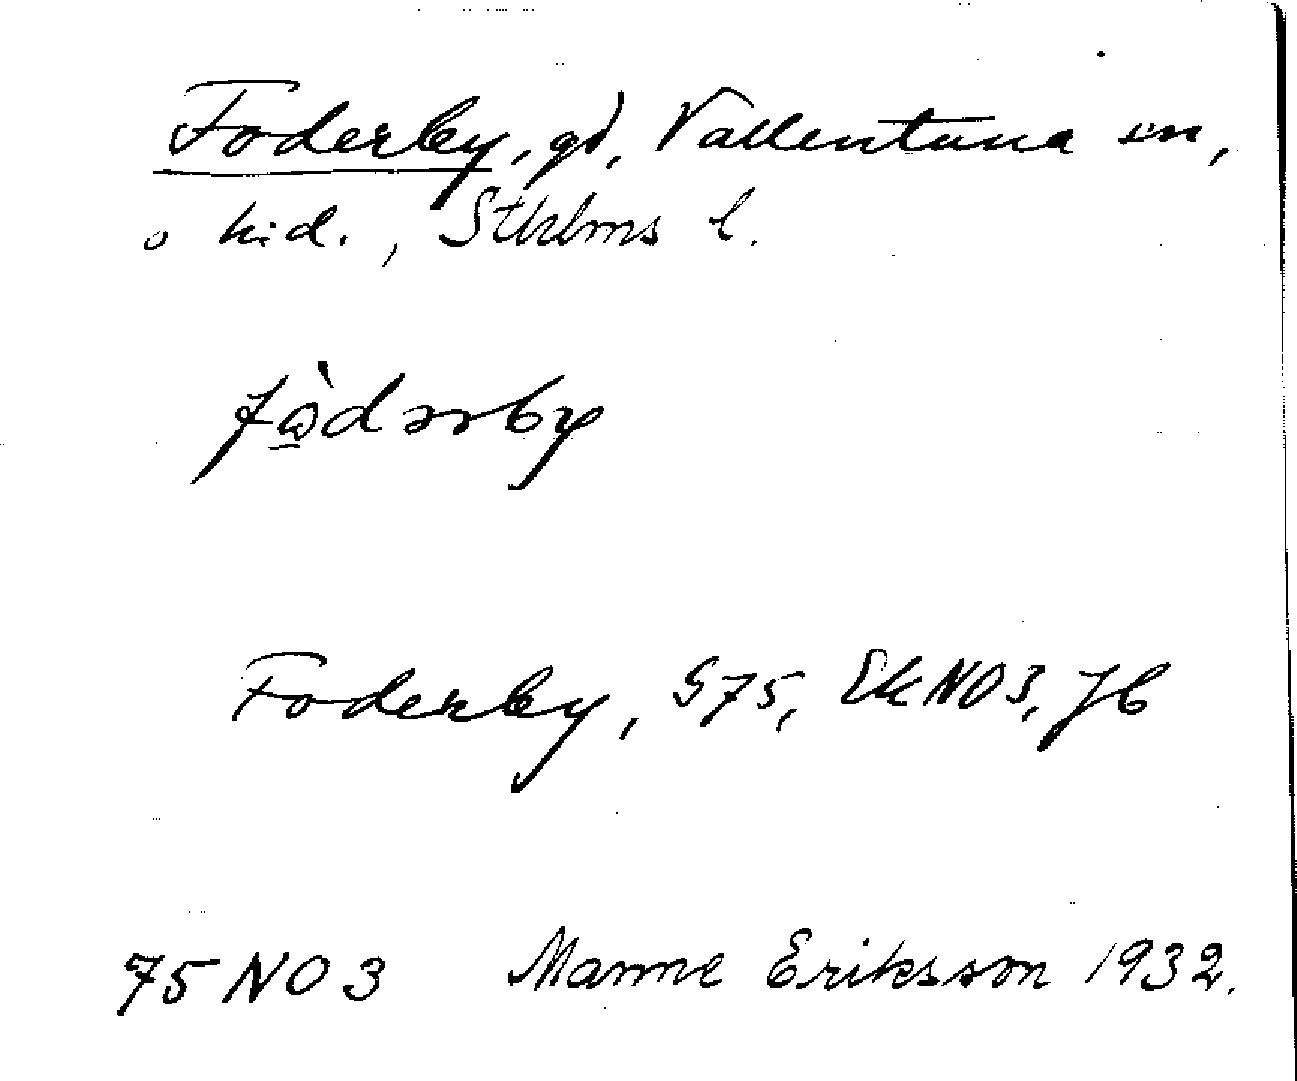 Foderby, gd, Vallentuna sn,
o hd., Sthlms l.
Foderby, G75, EkNO3, Jb
75 NO 3 Manne Eriksson 1932.